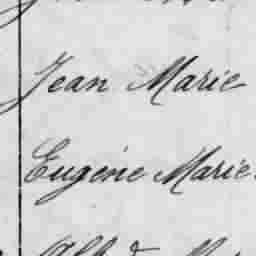 Jean Marie
Eugène Marie